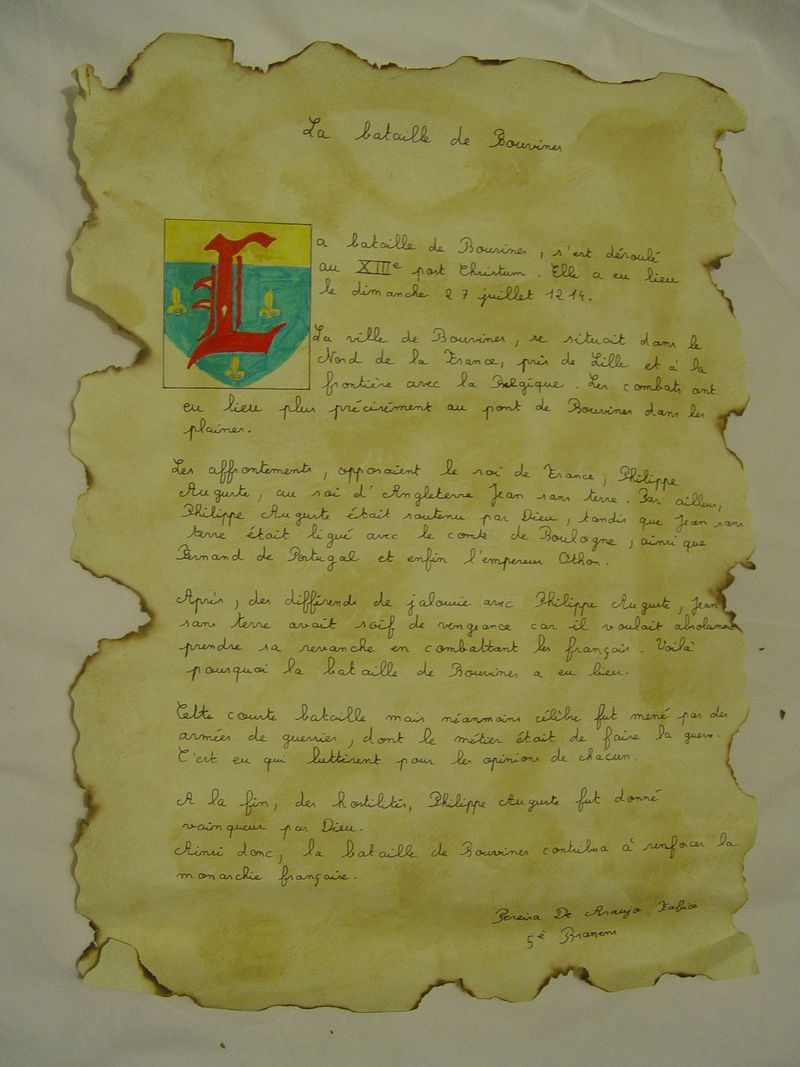 La bataille de Bouvines
La bataille de Bouvines, s'est déroulé
au XIIIe post Christum. Elle a eu lieu
le dimanche 27 juillet 1214.
La ville de Bouvines, se situait dans le
Nord de la France, près de Lille et à la
frontière avec la Belgique. Les combats ont
eu lieu plus précisément au pont de Bouvines dans les
plaines.
Les affrontements, opposaient le roi de France, Philippe
Auguste, au roi d'Angleterre Jean sans terre. Par ailleurs,
Philippe Auguste était soutenu par Dieu, tandis que Jean sans
terre était ligué avec le comte de Boulogne, ainsi que
Fernand de Portugal et enfin l'empereur Othon.
Après, des différends de jalousie avec Philippe Auguste, Jean
sans terre avait soif de vengeance car il voulait absolument
prendre sa revanche en combattant les français. Voilà
pourquoi la bataille de Bouvines a eu lieu.
Cette courte bataille mais néanmoins célèbre fut mené par des
armées de guerriers, dont le métier était de faire la guerre.
C'est eu qui luttèrent pour les opinions de chacun.
A la fin, des hostilités, Philippe Auguste fut donné
vainqueur par Dieu.
Ainsi donc, la bataille de Bouvines contribua à renforcer la
monarchie française.
Pereira De Araujo
5e